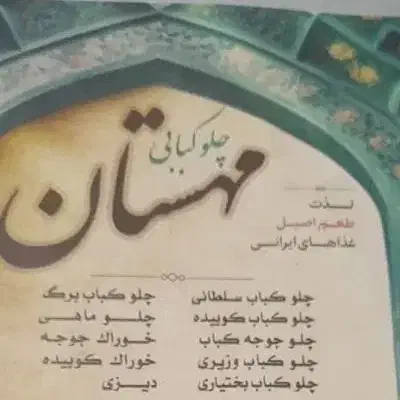 چلوکبابی
مهستان
لذت
طعم اصیل
غذاهای ایرانی
چلو کباب سلطانی
چلو کباب کوبیده
چلو جوجه کباب
چلو کباب وزیری
چلو کباب بختیاری
چلو کباب برگ
چلو ماهی
خوراک جوجه
خوراک کوبیده
دیزی